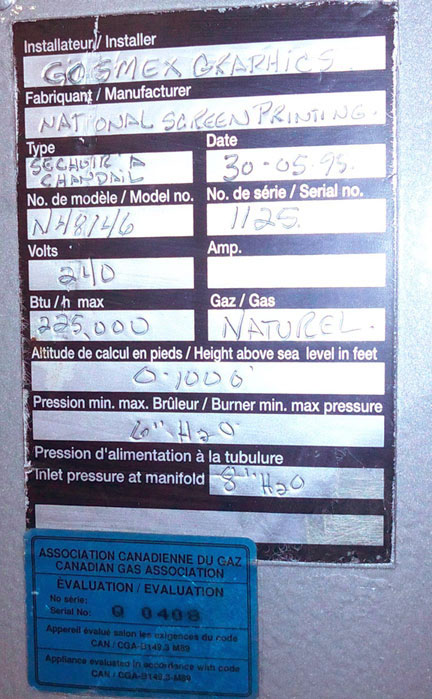 Installateur / Installer
GOSMEX GRAPHICS
Fabriquant / Manufacturer
NATIONAL SCREEN PRINTING.
Type
Date
SECHOIR A
CHANDAIL
30-05-95.
No. de modèle / Model no.
No. de série / Serial no.
N48146
1125.
Volts
Amp.
240
Btu / h max
Gaz / Gas
225,000
NATUREL.
Altitude de calcul en pieds / Height above sea level in feet
0-1000'
Pression min. max. Brûleur / Burner min. max pressure
6" H2O
Pression d'alimentation à la tubulure
Inlet pressure at manifold
8" H2O
ASSOCIATION CANADIENNE DU GAZ
CANADIAN GAS ASSOCIATION
ÉVALUATION / EVALUATION
No série:
Serial No: Q 0408
Appareil évalué selon les exigences du code
CAN / CGA-D149.3 M89
Appliance evaluated in accordance with code
CAN / CGA-D149.3-M89